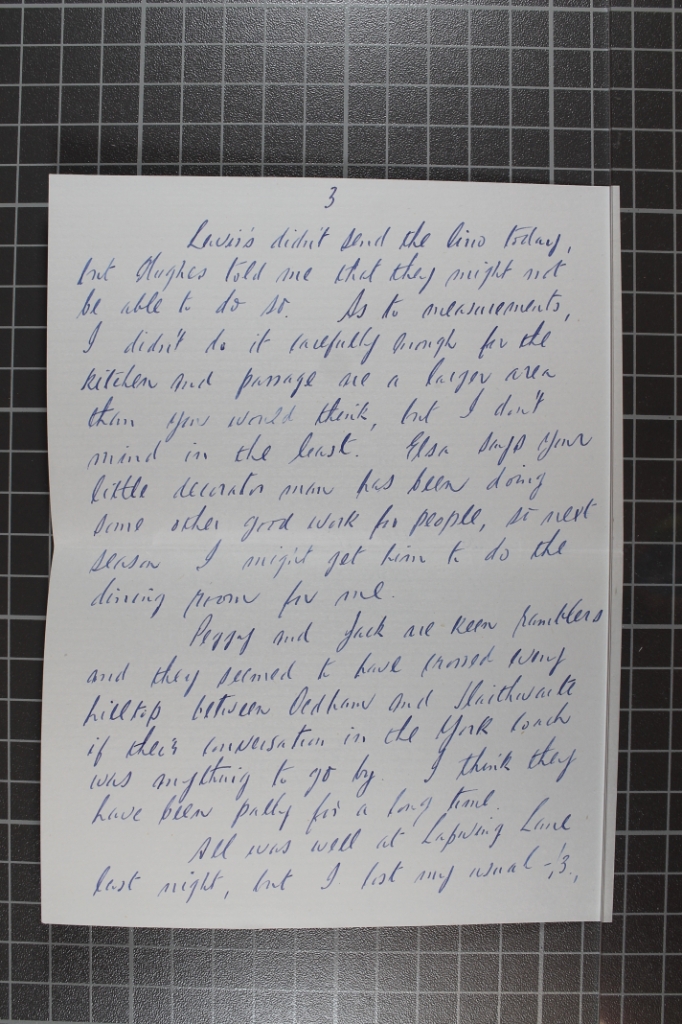 3
Lewis's didn't send the lino today,
but Hughes told me that they might not
be able to do so. As to measurements,
I didn't do it carefully enough for the
kitchen and passage are a larger area
than you would think, but I don't
mind in the least. Elsa says your
little decorator man has been doing
some other good work for people, so next
season I might get him to do the
dining room for me.
Peggy and Jack are keen ramblers
and they seemed to have crossed every
hilltop between Oldham and Slaithwaite
if their conversation in the York coach
was anything to go by. I think they
have been pally for a long time.
All was well at Lapwing Lane
last night, but I lost my usual -/3,